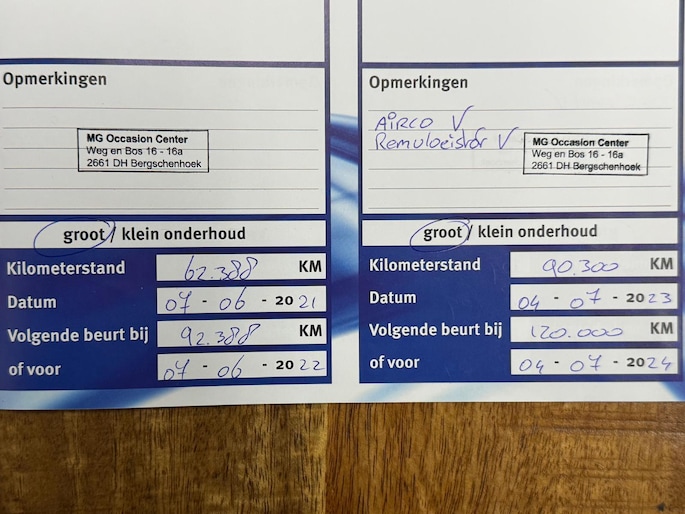 Opmerkingen
MG Occasion Center
Weg en Bos 16 - 16a
2661 DH Bergschenhoek
groot / klein onderhoud
Kilometerstand 62.388 KM
Datum 07 - 06 - 20 21
Volgende beurt bij 92.388 KM
of voor 07 - 06 - 20 22
Opmerkingen
AiRCO V
Remvloeistof V
MG Occasion Center
Weg en Bos 16 - 16a
2661 DH Bergschenhoek
groot / klein onderhoud
Kilometerstand 90.300 KM
Datum 04 - 07 - 20 23
Volgende beurt bij 120.000 KM
of voor 04 - 07 - 20 24